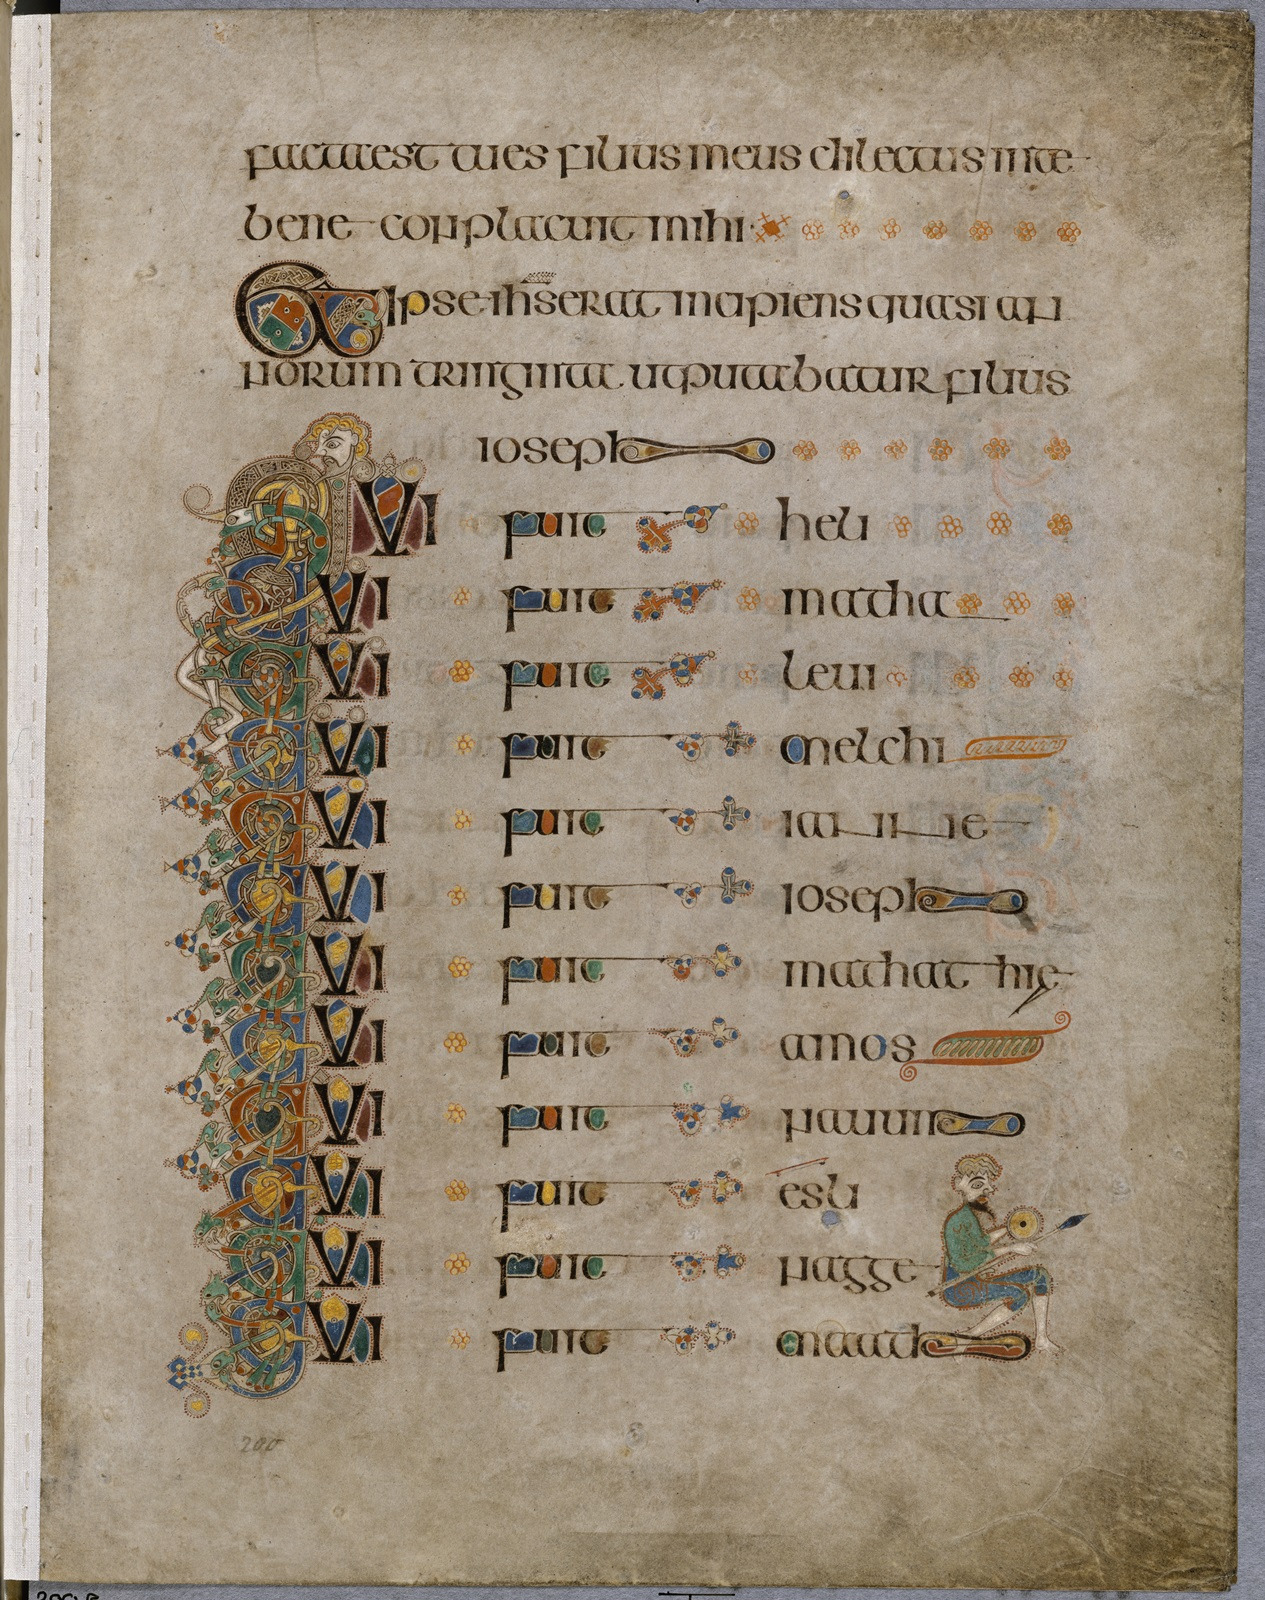 facta est tu es filius meus dilectus in te
bene conplacuit mihi
Et ipse ihs erat incipiens quasi an
norum tringinta ut putabatur filius
ioseph
QUI fuit heli
QUI fuit matha
QUI fuit leui
QUI fuit melchi
QUI fuit ianne
QUI fuit ioseph
QUI fuit mathat hie
QUI fuit amos
QUI fuit nauum
QUI fuit esli
QUI fuit nagge
QUI fuit maath
200